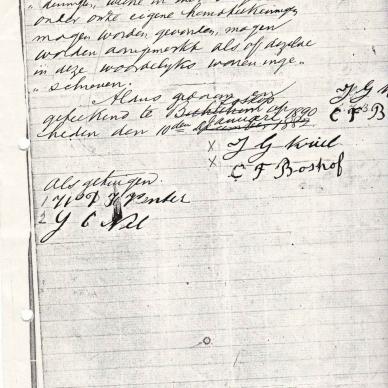 onder onze eigene handteekeningen
mogen worden gevonden, mogen
worden aangemerkt als of dezelve
in deze woordelyks waren inge"
" schreven.
Aldus gedaan en
geteekend te Boshof op
heden den 10den Januari 1890
X J G Kriel
X C F Boshof
Als getuigen.
1 Venter
2 J C Nel